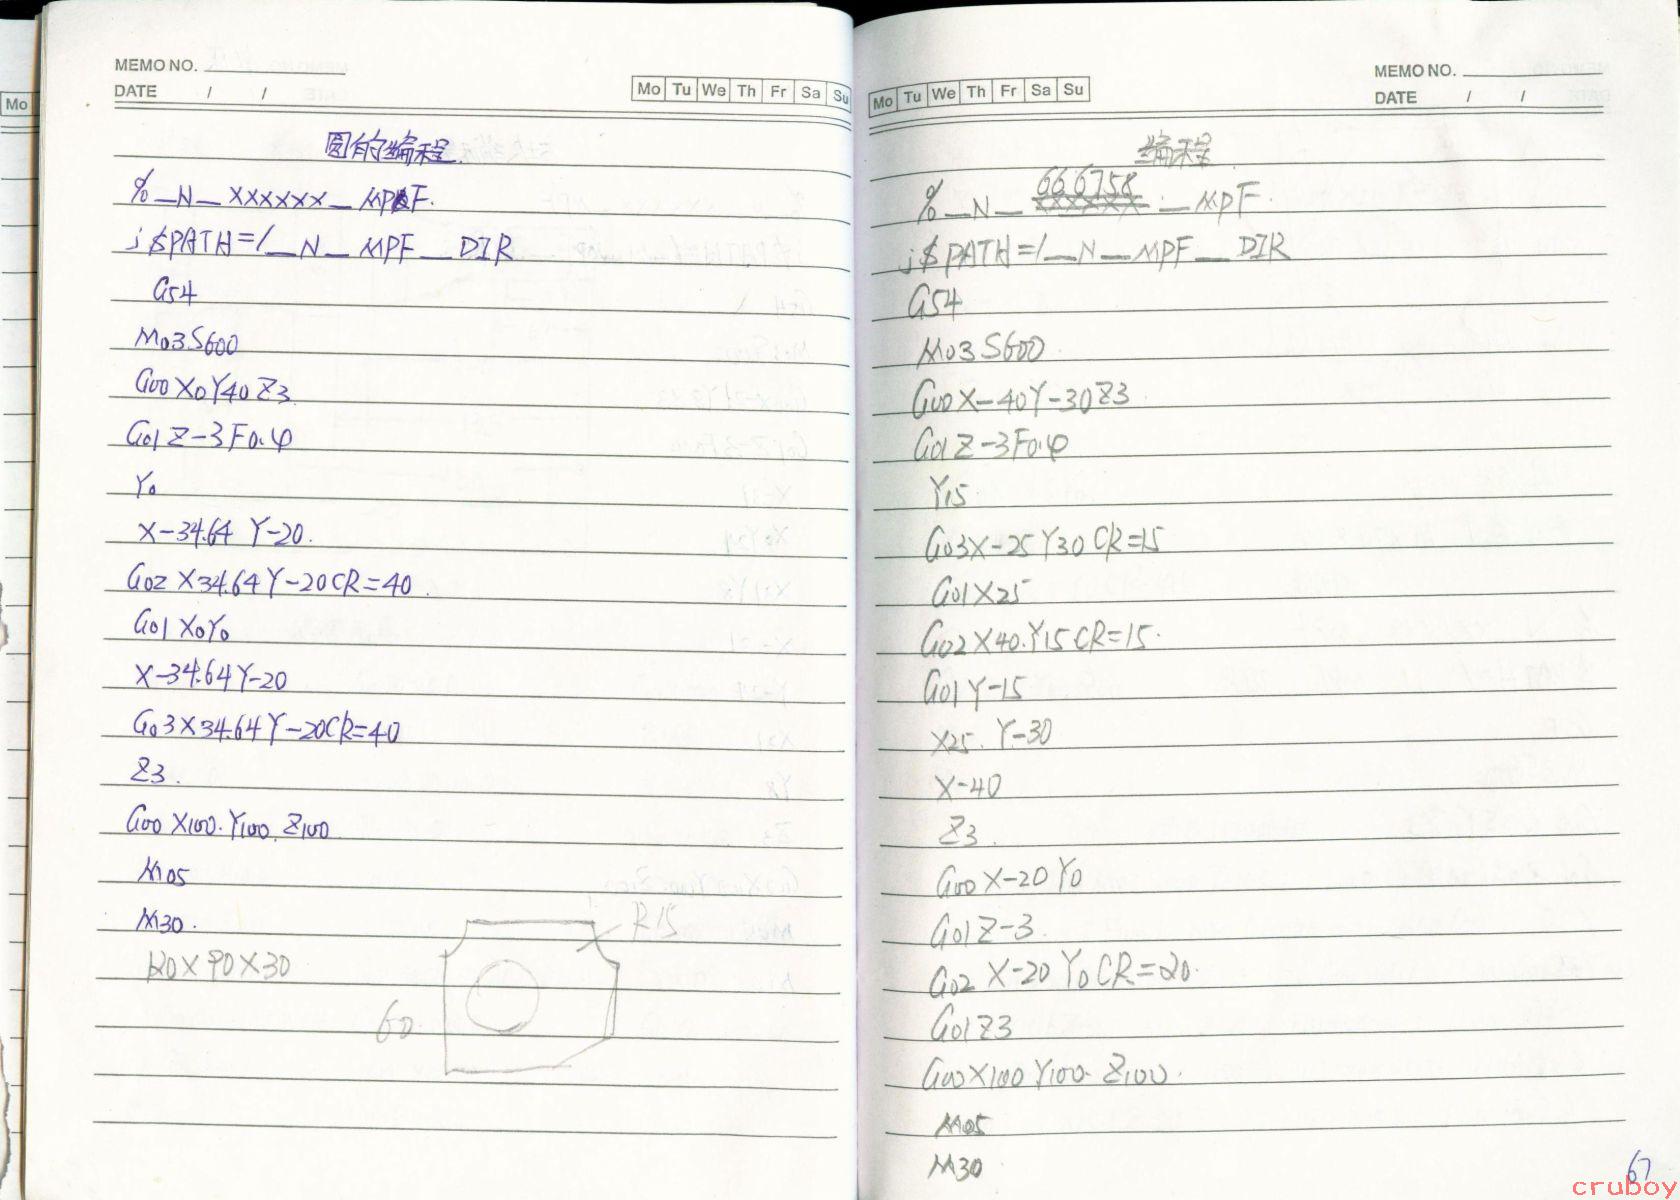 MEMO NO.
DATE / /
Mo Tu We Th Fr Sa Su
圆的编程.
%_N_XXXXXX_MPF.
;$PATH=/_N_MPF_DIR
G54
M03S600
G00X0Y40Z3
G01Z-3F0.φ
Y0
X-34.64 Y-20.
G02X34.64Y-20CR=40.
G01X0Y0
X-34.64Y-20
G03X34.64Y-20CR=40
Z3.
G00X100.Y100.Z100
M05
M30.
120X90X30
R15
60.
Mo
Mo Tu We Th Fr Sa Su
MEMO NO.
DATE / /
编程.
%_N_666758_MPF.
;$PATH=/_N_MPF_DIR
G54
M03S600.
G00X-40Y-30Z3
G01Z-3F0.φ
Y15.
G03X-25Y30CR=15
G01X25
G02X40.Y15CR=15.
G01Y-15
X25.Y-30
X-40
Z3.
G00X-20Y0
G01Z-3.
G02X-20Y0CR=20.
G01Z3
G00X100Y100.Z100.
M05
M30
67
cruboy